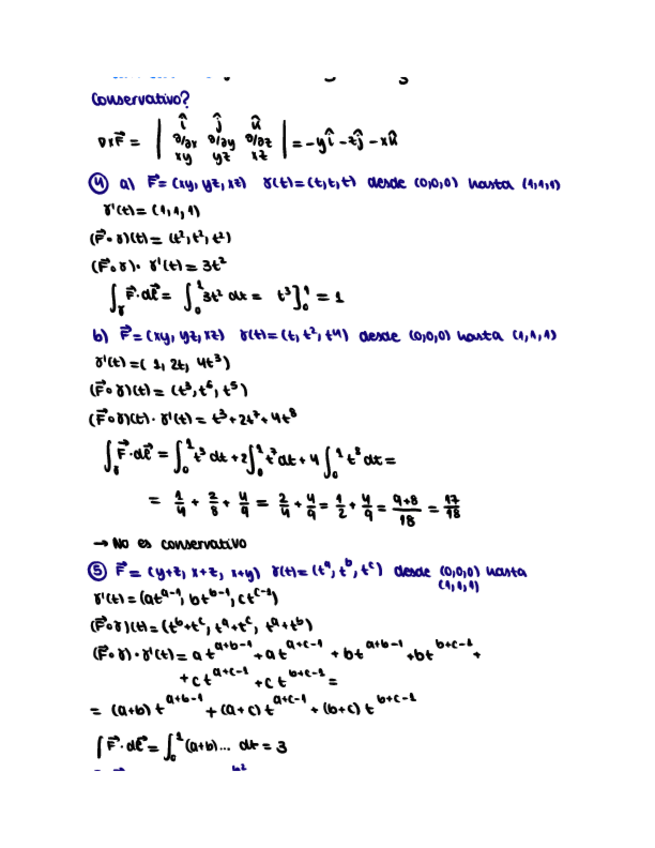 Conservativo?
∇x F⃗ = | î ĵ k̂ ∂/∂x ∂/∂y ∂/∂z xy yz xz | = -yî - zĵ - xk̂
④ a) F⃗ = (xy, yz, xz) γ(t) = (t, t, t) desde (0,0,0) hasta (1,1,1)
γ'(t) = (1, 1, 1)
(F⃗∘γ)(t) = (t², t², t²)
(F⃗∘γ)· γ'(t) = 3t²
∫_γ F⃗·dℓ⃗ = ∫₀¹ 3t² dt = t³]₀¹ = 1
b) F⃗ = (xy, yz, xz) γ(t) = (t, t², t⁴) desde (0,0,0) hasta (1,1,1)
γ'(t) = (1, 2t, 4t³)
(F⃗∘γ)(t) = (t³, t⁶, t⁵)
(F⃗∘γ)(t)· γ'(t) = t³ + 2t⁷ + 4t⁸
∫_γ F⃗·dℓ⃗ = ∫₀¹ t³ dt + 2∫₀¹ t⁷ dt + 4∫₀¹ t⁸ dt =
= 1/4 + 2/8 + 4/9 = 2/4 + 4/9 = 1/2 + 4/9 = 9+8/18 = 17/18
→ No es conservativo
⑤ F⃗ = (y+z, x+z, x+y) γ(t) = (t^a, t^b, t^c) desde (0,0,0) hasta
(1,1,1)
γ'(t) = (at^(a-1), bt^(b-1), ct^(c-1))
(F⃗∘γ)(t) = (t^b + t^c, t^a + t^c, t^a + t^b)
(F⃗∘γ)·γ'(t) = a t^(a+b-1) + a t^(a+c-1) + b t^(a+b-1) + b t^(b+c-1) +
+ c t^(a+c-1) + c t^(b+c-1) =
= (a+b) t^(a+b-1) + (a+c) t^(a+c-1) + (b+c) t^(b+c-1)
∫ F⃗·dℓ⃗ = ∫₀¹ (a+b)... dt = 3